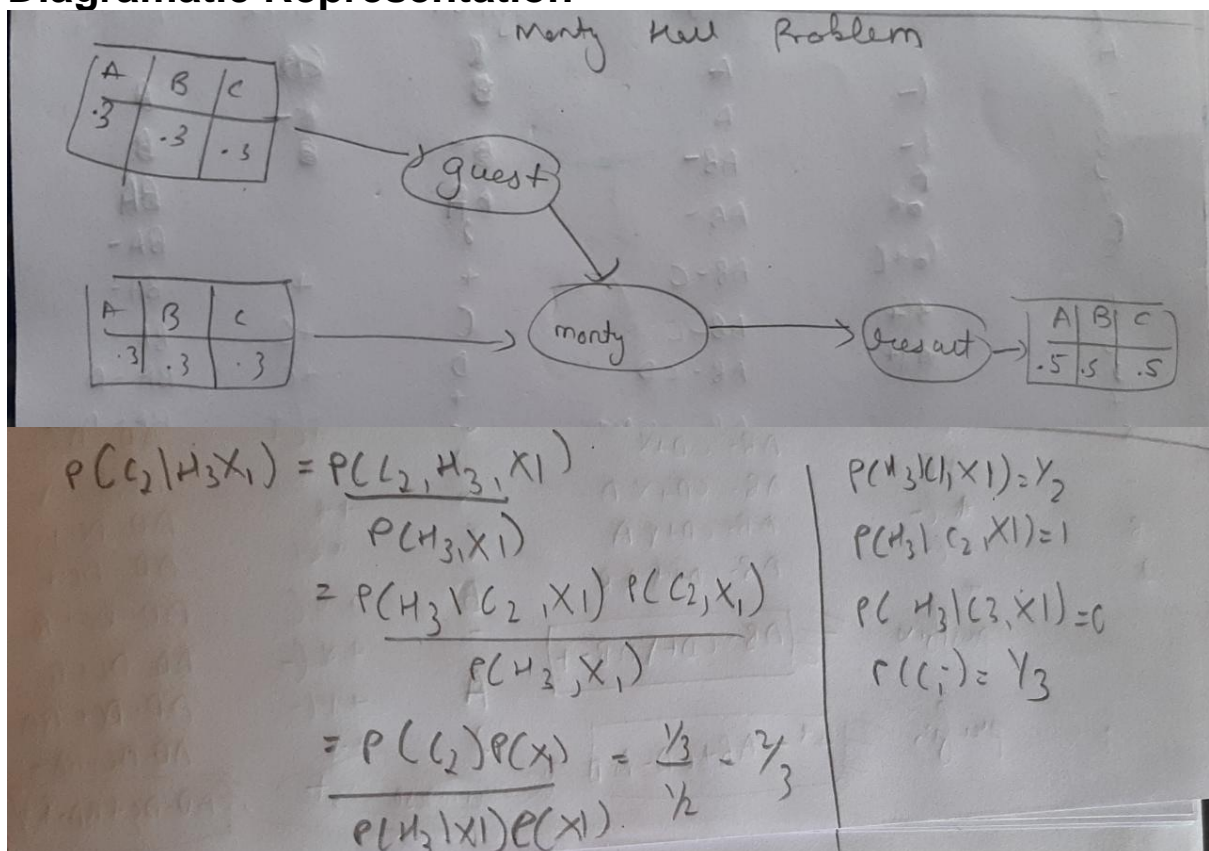 Diagramatic Representation
Monty Hall Problem
A B C
.3 .3 .3
guest
A B C
.3 .3 .3
monty
A B C
.5 .5 .5
P(C₂|H₃X₁) = P(C₂, H₃, X1)
P(H₃, X1)
= P(H₃ \ C₂, X1) P(C₂, X₁)
P(H₃, X₁)
= P(C₂)P(X1) = 1/3 = 2/3
P(H₃|X1)P(X1) 1/2
P(H₃|C1, X1) = 1/2
P(H₃| C₂, X1) = 1
P(H₃|C3, X1) = 0
P(Cᵢ) = 1/3